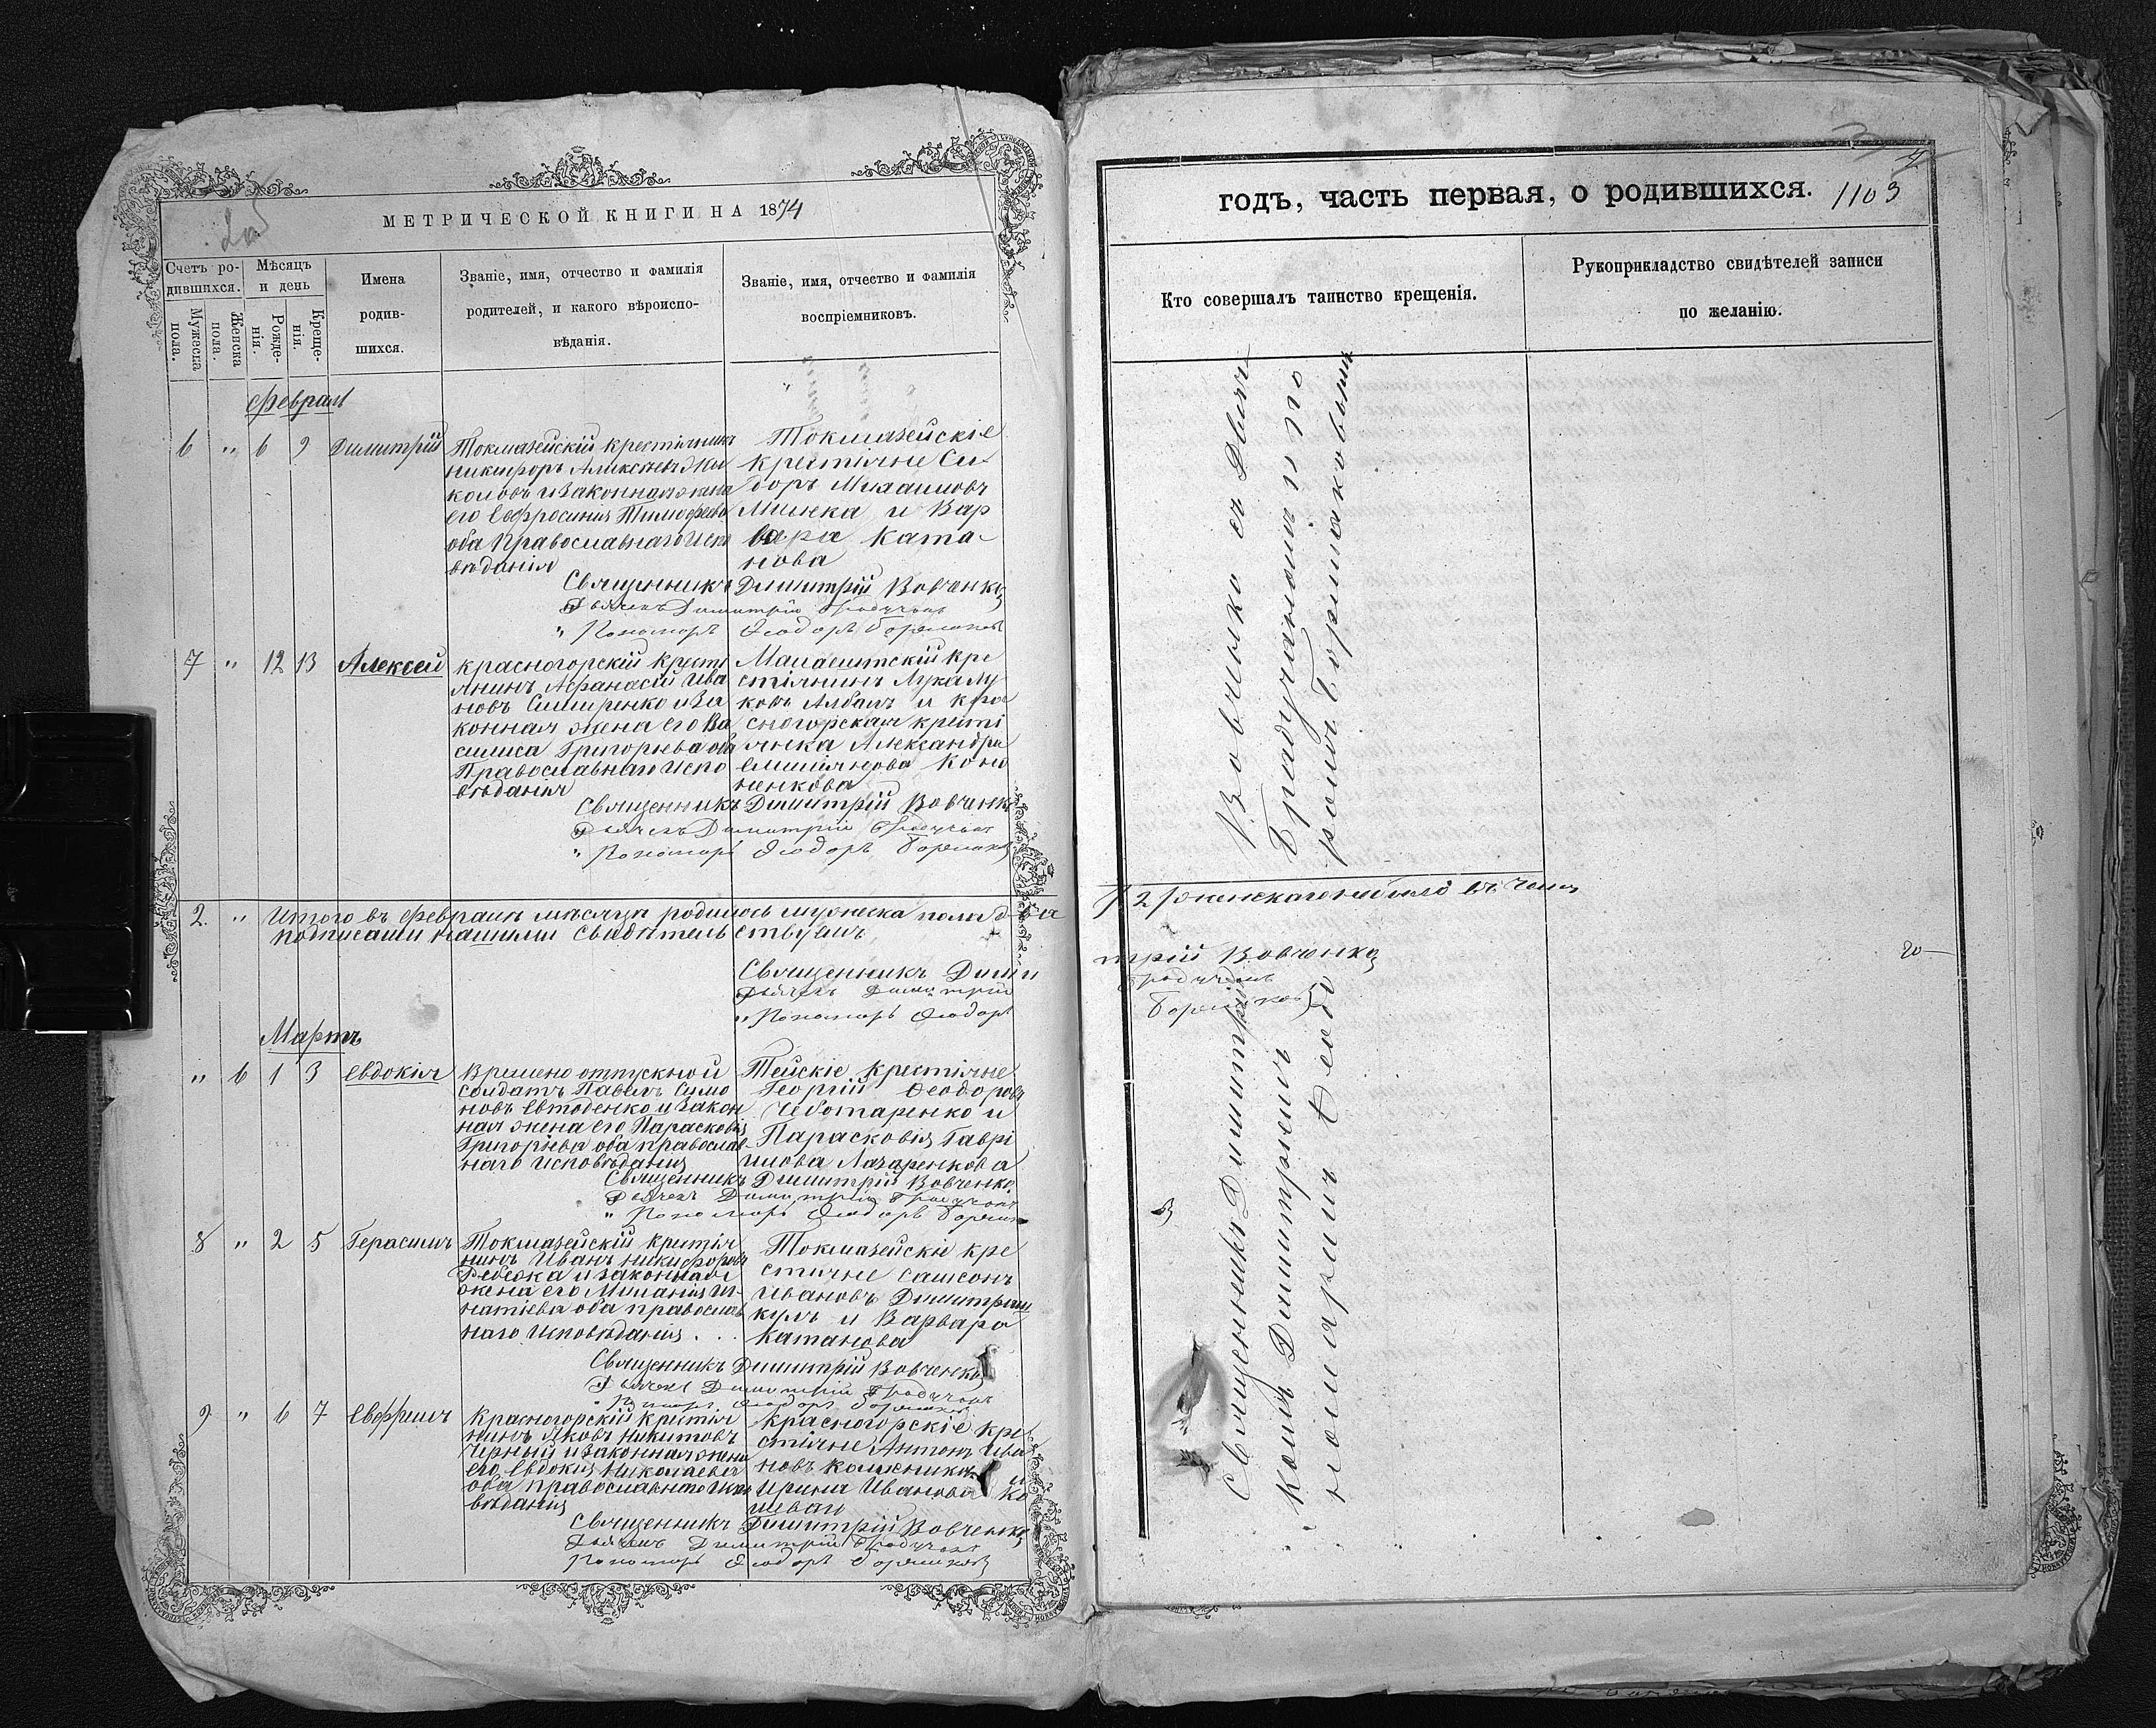 МЕТРИЧЕСКОЙ КНИГИ НА 1874
Счетъ ро-
дившихся.
Мужеска
пола.
Женска
пола.
Мѣсяцъ
и день
Рожде-
нія.
Креще-
нія.
Имена
родив-
шихся.
Званіе, имя, отчество и фамилія
родителей, и какого вѣроиспо-
вѣданія.
Званіе, имя, отчество и фамилія
воспріемниковъ.
Февраль
6 " 6 9 Димитрій
Токмазейскій крестьянинъ
Никифоръ Алексѣевъ
и законная жена
его Евфросинія Тимофеева
оба Православнаго испо
вѣданія
Токмазейскіе
крестьяне Си-
доръ Михаиловъ
Милька и Вар
вара Ката-
нова
Священникъ Димитрій Вовченко
Дьячекъ Димитрій
" Пономарь Ѳеодоръ
7 " 12 13 Алексѣй
Красногорскій кресть
янинъ Афанасій Ива
новъ Симиренко и за
конная жена его Ва
силиса Григорьева оба
Православнаго испо
вѣданія
Малаештскій кре
стьянинъ Лука Лу
ковъ Албалъ и кра
сногорская кресть
янка Александра
Емилянова Коно
ненкова
Священникъ Димитрій Вовченко
Дьячекъ Димитрій
" Пономарь Ѳеодоръ
2. " Итого въ февралѣ мѣсяцѣ родилось мужеска пола два
подписами нашими свидѣтельствуемъ
Священникъ Дими
Дьячекъ Димитрій
" Пономарь Ѳеодоръ
Мартъ
" 6 1 3 Евдокія
Времено отпускной
солдатъ Павелъ Симо
новъ Евтоденко и закон
ная жена его Парасковія
Григорьева оба православ-
наго исповѣданія
Тейскіе крестьяне
Георгій Ѳеодоровъ
Чеботаренко и
Парасковія Гаврі
илова Лазаренкова
Священникъ Димитрій Вовченко
Дьячекъ Димитрій
" Пономарь Ѳеодоръ
8 " 2 5 Герасимъ
Токмазейскій крестья
нинъ Иванъ Никифоровъ
и законная
жена его Меланія Иг-
натіева оба православ
наго исповѣданія . . .
Токмазейскіе кре
стьяне Самсонъ
Ивановъ Димитриш
кулъ и Варвара
Катанова
Священникъ Димитрій Вовченко
Дьячекъ Димитрій
" Пономарь Ѳеодоръ
9 " 6 7 Евфремъ
Красногорскій крестья
нинъ Яковъ Никитовъ
Черный и законная жена
его Евдокія Николаева
оба православнаго испо
вѣданія
Красногорскіе кре
стьяне Антонъ Ива
новъ и
Ирина Иванова Ко
Священникъ Димитрій Вовченко
Дьячекъ Димитрій
Пономарь Ѳеодоръ
годъ, часть первая, о родившихся. 1103
4
Кто совершалъ таинство крещенія.
Рукоприкладство свидѣтелей записи
по желанію.
/2/ женскаго небыло въ чемъ
трій Вовченко
20
Священникъ Димитрій Вовченко съ Дьяч
комъ Димитріемъ и по
номаремъ Ѳеодо
ромъ